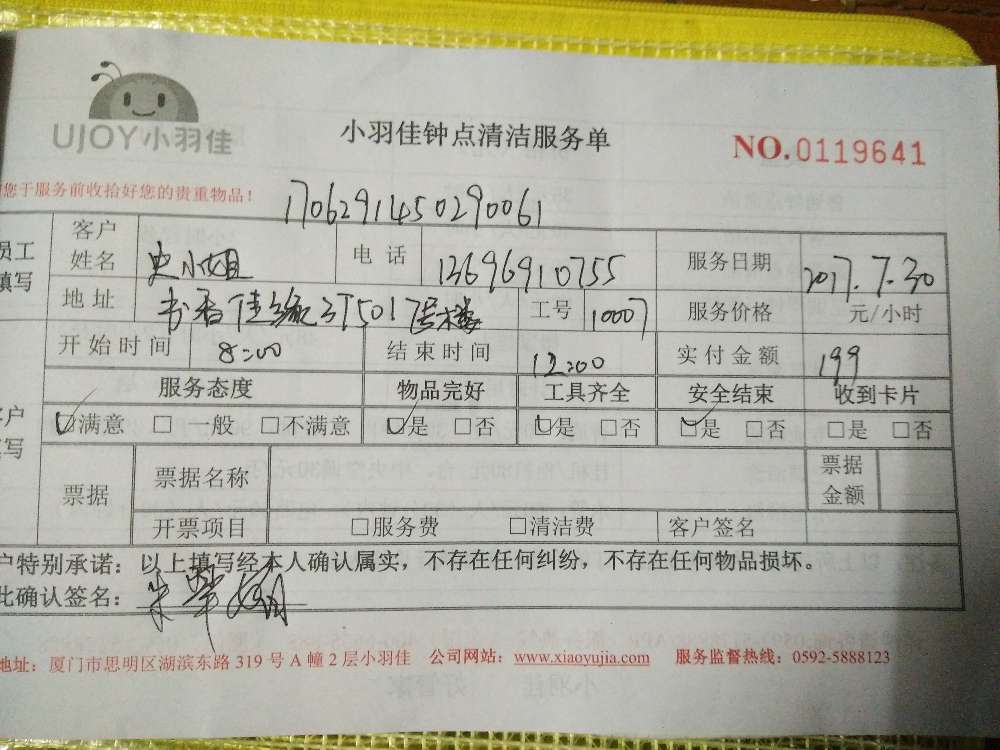 UJOY小羽佳
小羽佳钟点清洁服务单
NO.0119641
您于服务前收拾好您的贵重物品！
1706291450290061
员工
填写
客户
姓名
史小姐
电 话
13696910755
服务日期
2017.7.30
地 址
书香佳缘
号楼
工号
10007
服务价格
元/小时
开 始 时 间
8:00
结 束 时 间
12:00
实 付 金 额
199
服务态度
物品完好
工具齐全
安全结束
收到卡片
客户
填写
☑满意 □ 一般 □不满意
☑是 □否
☑是 □否
☑是 □否
□是 □否
票据
票据名称
票据
金额
开票项目
□服务费 □清洁费
客户签名
户特别承诺：以上填写经本人确认属实，不存在任何纠纷，不存在任何物品损坏。
此确认签名：
地址：厦门市思明区湖滨东路 319 号 A 幢 2 层小羽佳 公司网站：www.xiaoyujia.com 服务监督热线：0592-5888123